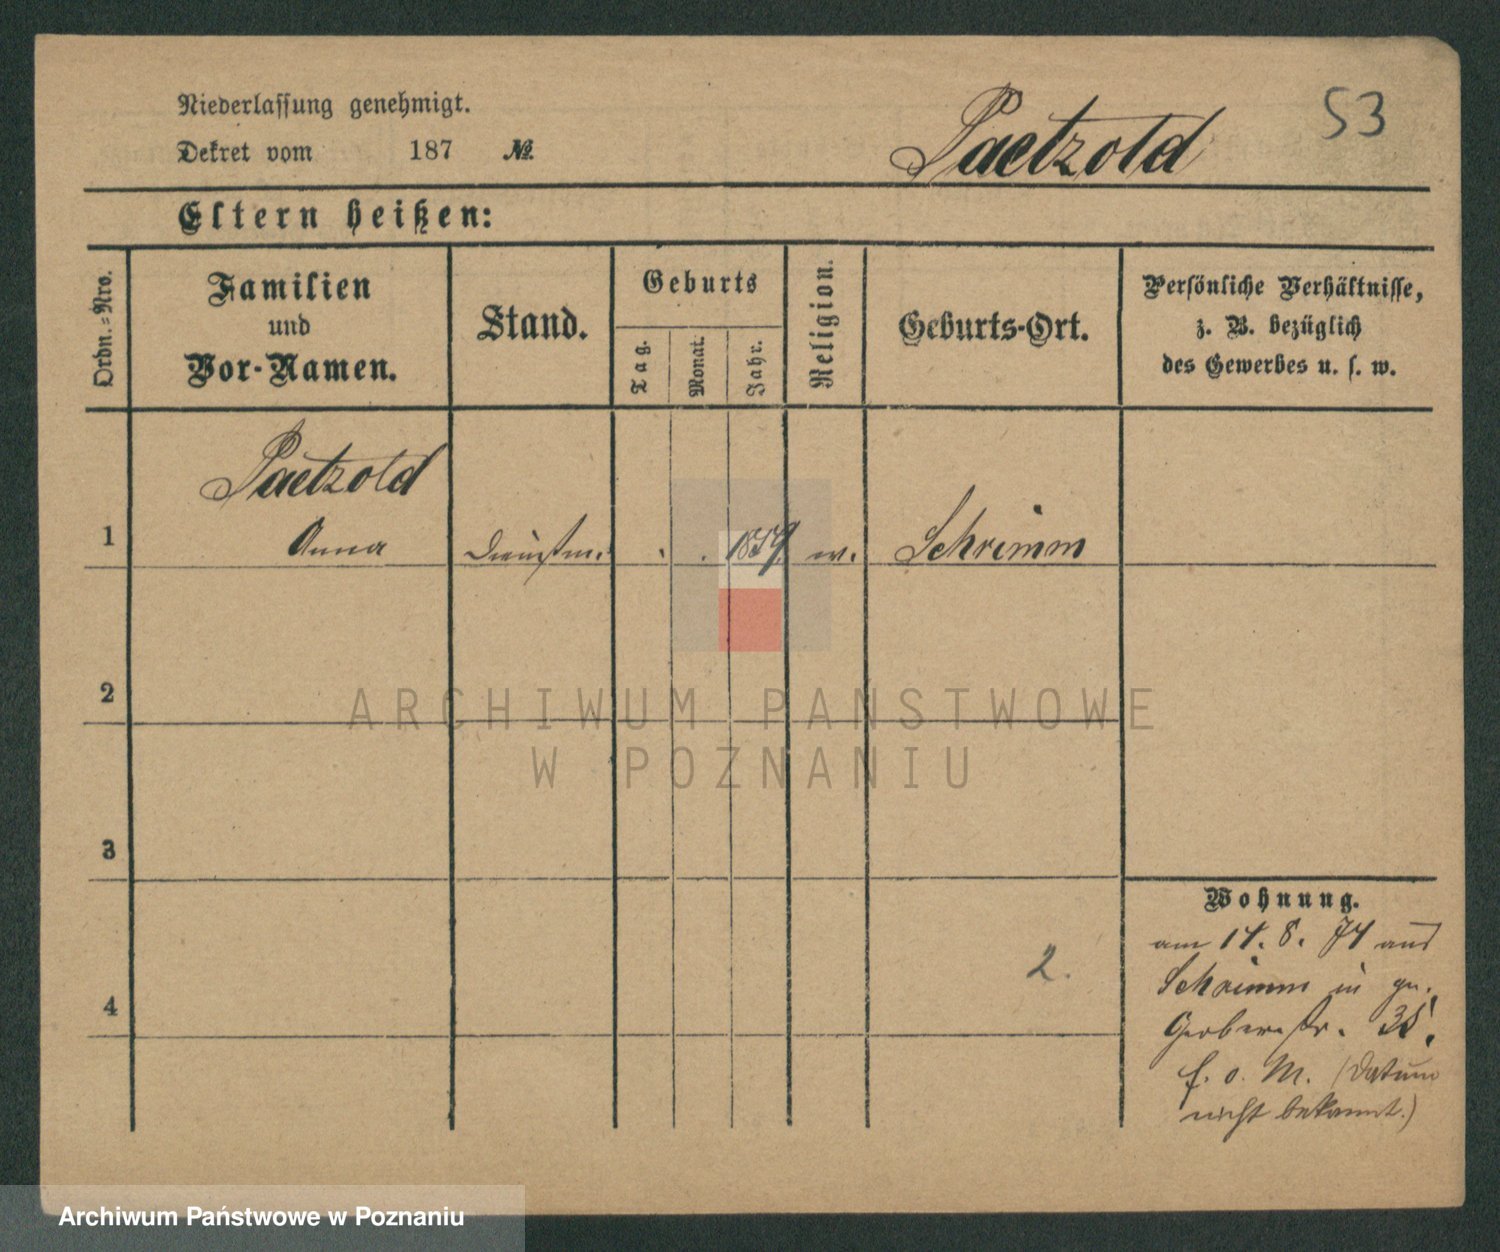 Niederlassung genehmigt.
Dekret vom 187 №
Paetzold
53
Eltern heißen:
Ordn.-Nro.
Familien
und
Vor-Namen.
Stand.
Geburts
Tag.
Monat.
Jahr.
Religion.
Geburts-Ort.
Persönliche Verhältnisse,
z. B. bezüglich
des Gewerbes u. s. w.
Paetzold
1 Anna Dienstm. 1859 Schrimm
2
3
4
ARCHIWUM PAŃSTWOWE
W POZNANIU
Wohnung.
am 14. 8. 74 aus
Schrimm in
Gerberstr. 35.
f. o. M. (Datum
nicht bekannt.)
2.
Archiwum Państwowe w Poznaniu